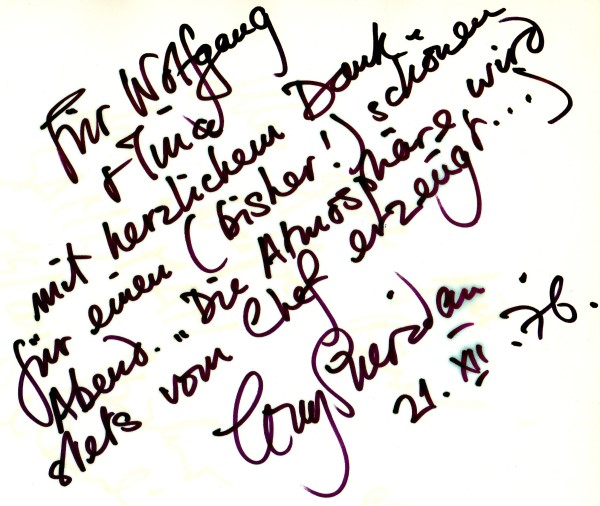 Für Wolfgang
+ Tina
mit herzlichem Dank
für einen (bisher!) schönen
Abend. „Die Atmosphäre wird
stets vom Chef erzeugt...)
Sheridan
21. XII. 76.